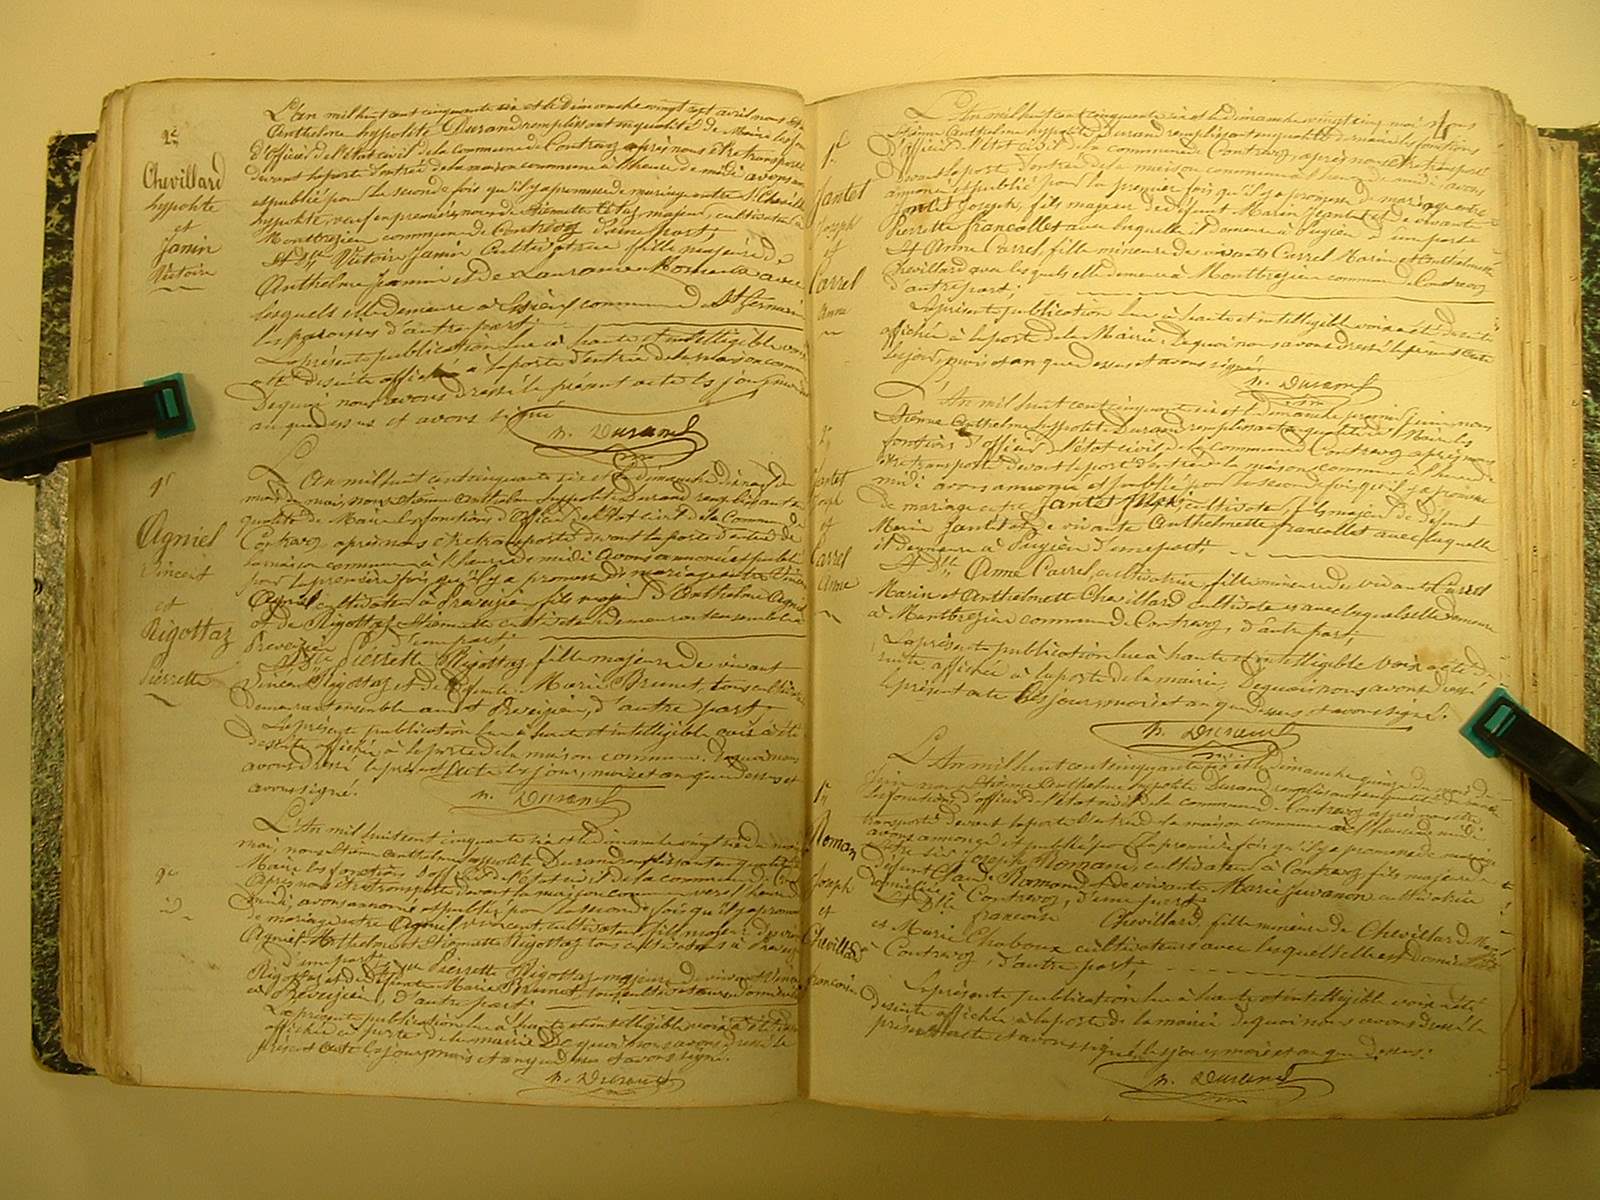 2e
Chevillard
hypolite
et
Janin
Victoire
L'An mil huit cent cinquante six et le Dimanche vingt sept avril nous
Anthelme hypolite Durand remplissant en qualité de Maire les
d'officier de l'état civil de la commune de Contrevoz après nous être transporté
devant la porte d'entrée de la maison commune à l'heure de midi avons
et publié pour la seconde fois qu'il y a promesse de mariage entre
hypolite, veuf en premières noces de majeur, cultivateur à
Montbrezieu commune de Contrevoz d'une part;
Et Dlle Victoire Janin Cultivatrice fille majeure de
Anthelme Janin et de Laurance avec
lesquels elle demeure à commune de St Germain
les paroisses d'autre part;
La présente publication lue à haute et intelligible voix
a été de suite affichée à la porte d'entrée de la maison commune
De quoi nous avons dressé le présent acte les jour, mois
an que dessus et avons signé
h. Durand
1e
Agniel
Vincent
et
Rigottaz
Pierrette
L'An mil huit cent cinquante six et le Dimanche
mois de mai, nous étienne anthelme hyppolite Durand remplissant en
qualité de Maire les fonctions d'officier de l'état civil de la Commune de
Contrevoz après nous être transporté devant la porte d'entrée de
la maison commune à l'heure de midi avons annoncé et publié
pour la première fois qu'il y a promesse de mariage entre Vincent
Agniel cultivateur à Preveizieu fils majeur d'Anthelme Agniel
et de Rigottaz cultivateurs demeurant ensemble à
Preveizieu d'une part;
Et Dlle Pierrette Rigottaz, fille majeure de vivant
Vincent Rigottaz et de Défunte Marie Brunet, tous cultivateurs
demeurant ensemble audit Preveizieu, d'autre part
La présente publication lue à haute et intelligible voix a été
de suite affichée à la porte de la maison commune. De quoi nous
avons dressé le présent acte les jour, mois et an que dessus et
avons signé.
h. Durand
2e
id
L'An mil huit cent cinquante six et le dimanche vingt cinq du mois
mai, nous étienne anthelme hyppolite Durand remplissant en qualité
Maire les fonctions d'officier de l'état civil de la commune de
Après nous être transporté devant la maison commune vers l'heure de
midi, avons annoncé et publié pour la seconde fois qu'il y a promesse
de mariage entre Agniel Vincent, cultivateur fils majeur de vivant
Agniel Anthelme et Rigottaz tous cultivateurs à
d'une part
Et Dlle Pierrette Rigottaz majeure de vivant Vincent
Rigottaz et de Défunte Marie Brunet, tous cultivateurs
à Preveizieu, d'autre part
La présente publication lue à haute et intelligible voix a été de suite
affichée à la porte de la mairie De quoi nous avons dressé le
présent acte les jour mois et an que dessus et avons signé.
h. Durand
1e
Jantet
Joseph
et
Carrel
Anne
L'An mil huit cent cinquante six et le dimanche vingt cinq mai nous
étienne Anthelme hyppolite Durand remplissant en qualité de maire les fonctions
d'officier de l'état civil de la commune de Contrevoz, après nous être transporté
devant la porte d'entrée de la maison commune à l'heure de midi, avons
annoncé et publié pour la première fois qu'il y a promesse de mariage entre
Jantet Joseph, fils majeur de défunt Marin Jantet et de vivante
Pierrette francollet avec laquelle il demeure à Pugieu d'une part
Et Anne Carrel, fille mineure des vivants Carrel Marin et Anthelmette
Chevillard avec lesquels elle demeure à Montbrezieu commune de Contrevoz
d'autre part;
La présente publication lue à haute et intelligible voix a été de suite
affichée à la porte de la Mairie. De quoi nous avons dressé le présent acte
les jour, mois et an que dessus et avons signé.
h. Durand
2e
Jantet
Joseph
et
Carrel
Anne
L'An mil huit cent cinquante six et le dimanche premier Juin, nous
étienne Anthelme hyppolite Durand remplissant en qualité de Maire les
fonctions d'officier de l'état civil de la commune de Contrevoz après nous
être transporté devant la porte d'entrée de la maison commune à l'heure de
midi avons annoncé et publié pour la seconde fois qu'il y a promesse
de mariage entre Jantet cultivateur, fils majeur de défunt
Marin Jantet et de vivante Anthelmette francollet avec laquelle
il demeure à Pugieu d'une part;
Et Dlle Anne Carrel, cultivatrice, fille mineure de vivants Carrel
Marin et Anthelmette Chevillard cultivateurs avec lesquels elle demeure
à Montbrezieu commune de Contrevoz, d'autre part
La présente publication lue à haute et intelligible voix a été de
suite affichée à la porte de la mairie, De quoi nous avons dressé
le présent acte les jour, mois et an que dessus et avons signé.
h. Durand
1e
Roman
Joseph
et
Chevillard
francoise
L'An mil huit cent cinquante six et le Dimanche quinze du mois de
Juin nous étienne Anthelme hyppolite Durand remplissant en qualité de maire
les fonctions d'officier de l'état civil de la commune de Contrevoz après nous être
transporté devant la porte d'entrée de la maison commune à l'heure de midi
avons annoncé et publié pour la première fois qu'il y a promesse de mariage
entre Joseph Romand, cultivateur à Contrevoz, fils majeur de
défunt Claude Romand et de vivante Marie Juvanon cultivatrice
domiciliée à Contrevoz, d'une part
Et Dlle francoise Chevillard, fille mineure de Chevillard
et Marie Chaboux cultivateurs avec lesquels elle est domiciliée
à Contrevoz, d'autre part,
La présente publication lue à haute et intelligible voix a été
de suite affichée à la porte de la mairie De quoi nous avons dressé le
présent acte et avons signé, les jour, mois et an que dessus.
h. Durand